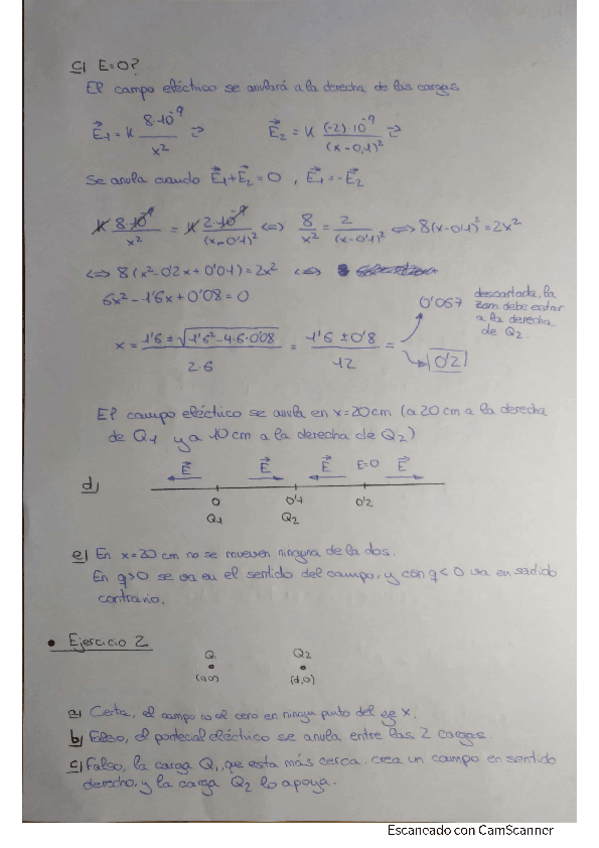 c) E=0?
El campo eléctrico se anulará a la derecha de las cargas
E⃗₁ = K 8·10⁻⁹ / x²    E⃗₂ = K (-2)·10⁻⁹ / (x-0,1)²
Se anula cuando E⃗₁+E⃗₂=0, E⃗₁=-E⃗₂
K 8·10⁻⁹ / x² = K 2·10⁻⁹ / (x-0'1)² <=> 8 / x² = 2 / (x-0'1)² <=> 8(x-0'1)² = 2x²
<=> 8(x²-0'2x+0'01)=2x² <=>
6x²-1'6x+0'08=0
x = 1'6 ± √(1'6²-4·6·0'08) / 2·6 = 1'6 ± 0'8 / 12 =
0'067
descartada, la
zona debe estar
a la derecha
de Q2
0'2
El campo eléctrico se anula en x=20cm (a 20 cm a la derecha
de Q1 y a 10 cm a la derecha de Q2)
d)
E⃗ E⃗ E⃗ E=0 E⃗
0 0'1 0'2
Q1 Q2
e) En x=20 cm no se mueven ninguna de la dos.
En q>0 se va en el sentido del campo, y con q<0 va en sentido
contrario.
• Ejercicio 2
Q1 Q2
(0,0) (d,0)
a) Cierta, el campo no el cero en ningun punto del eje x.
b) Falso, el potencial eléctrico se anula entre las 2 cargas.
c) Falso, la carga Q1, que esta más cerca, crea un campo en sentido
derecho, y la carga Q2 lo apoya.
Escaneado con CamScanner